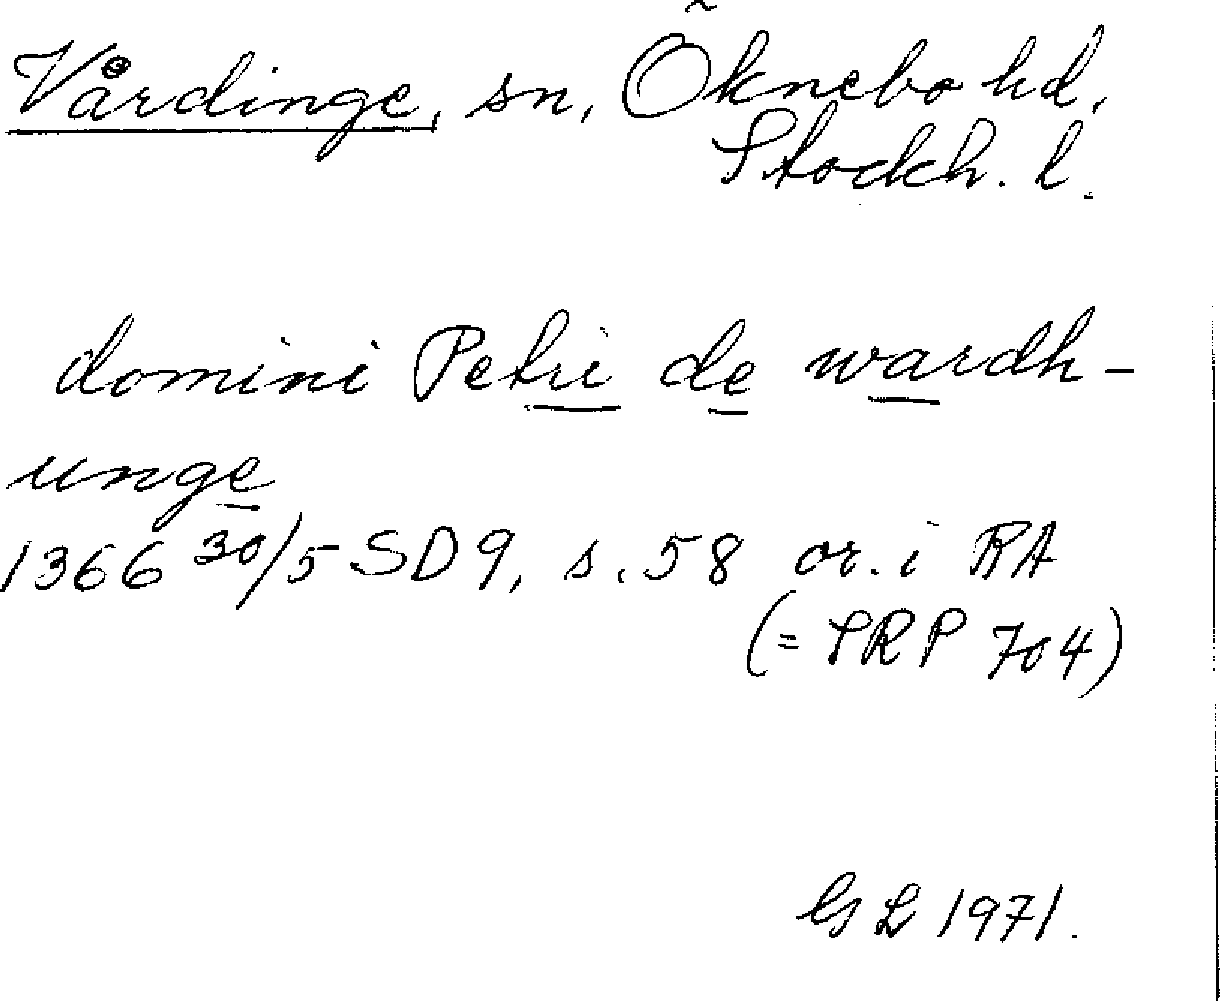 Vårdinge, sn, Öknebo hd,
Stockh. l.
domini Petri de wardh-
unge
1366 30/5 SD 9, s. 58 or. i RA
(= SRP 704)
GL 1971.